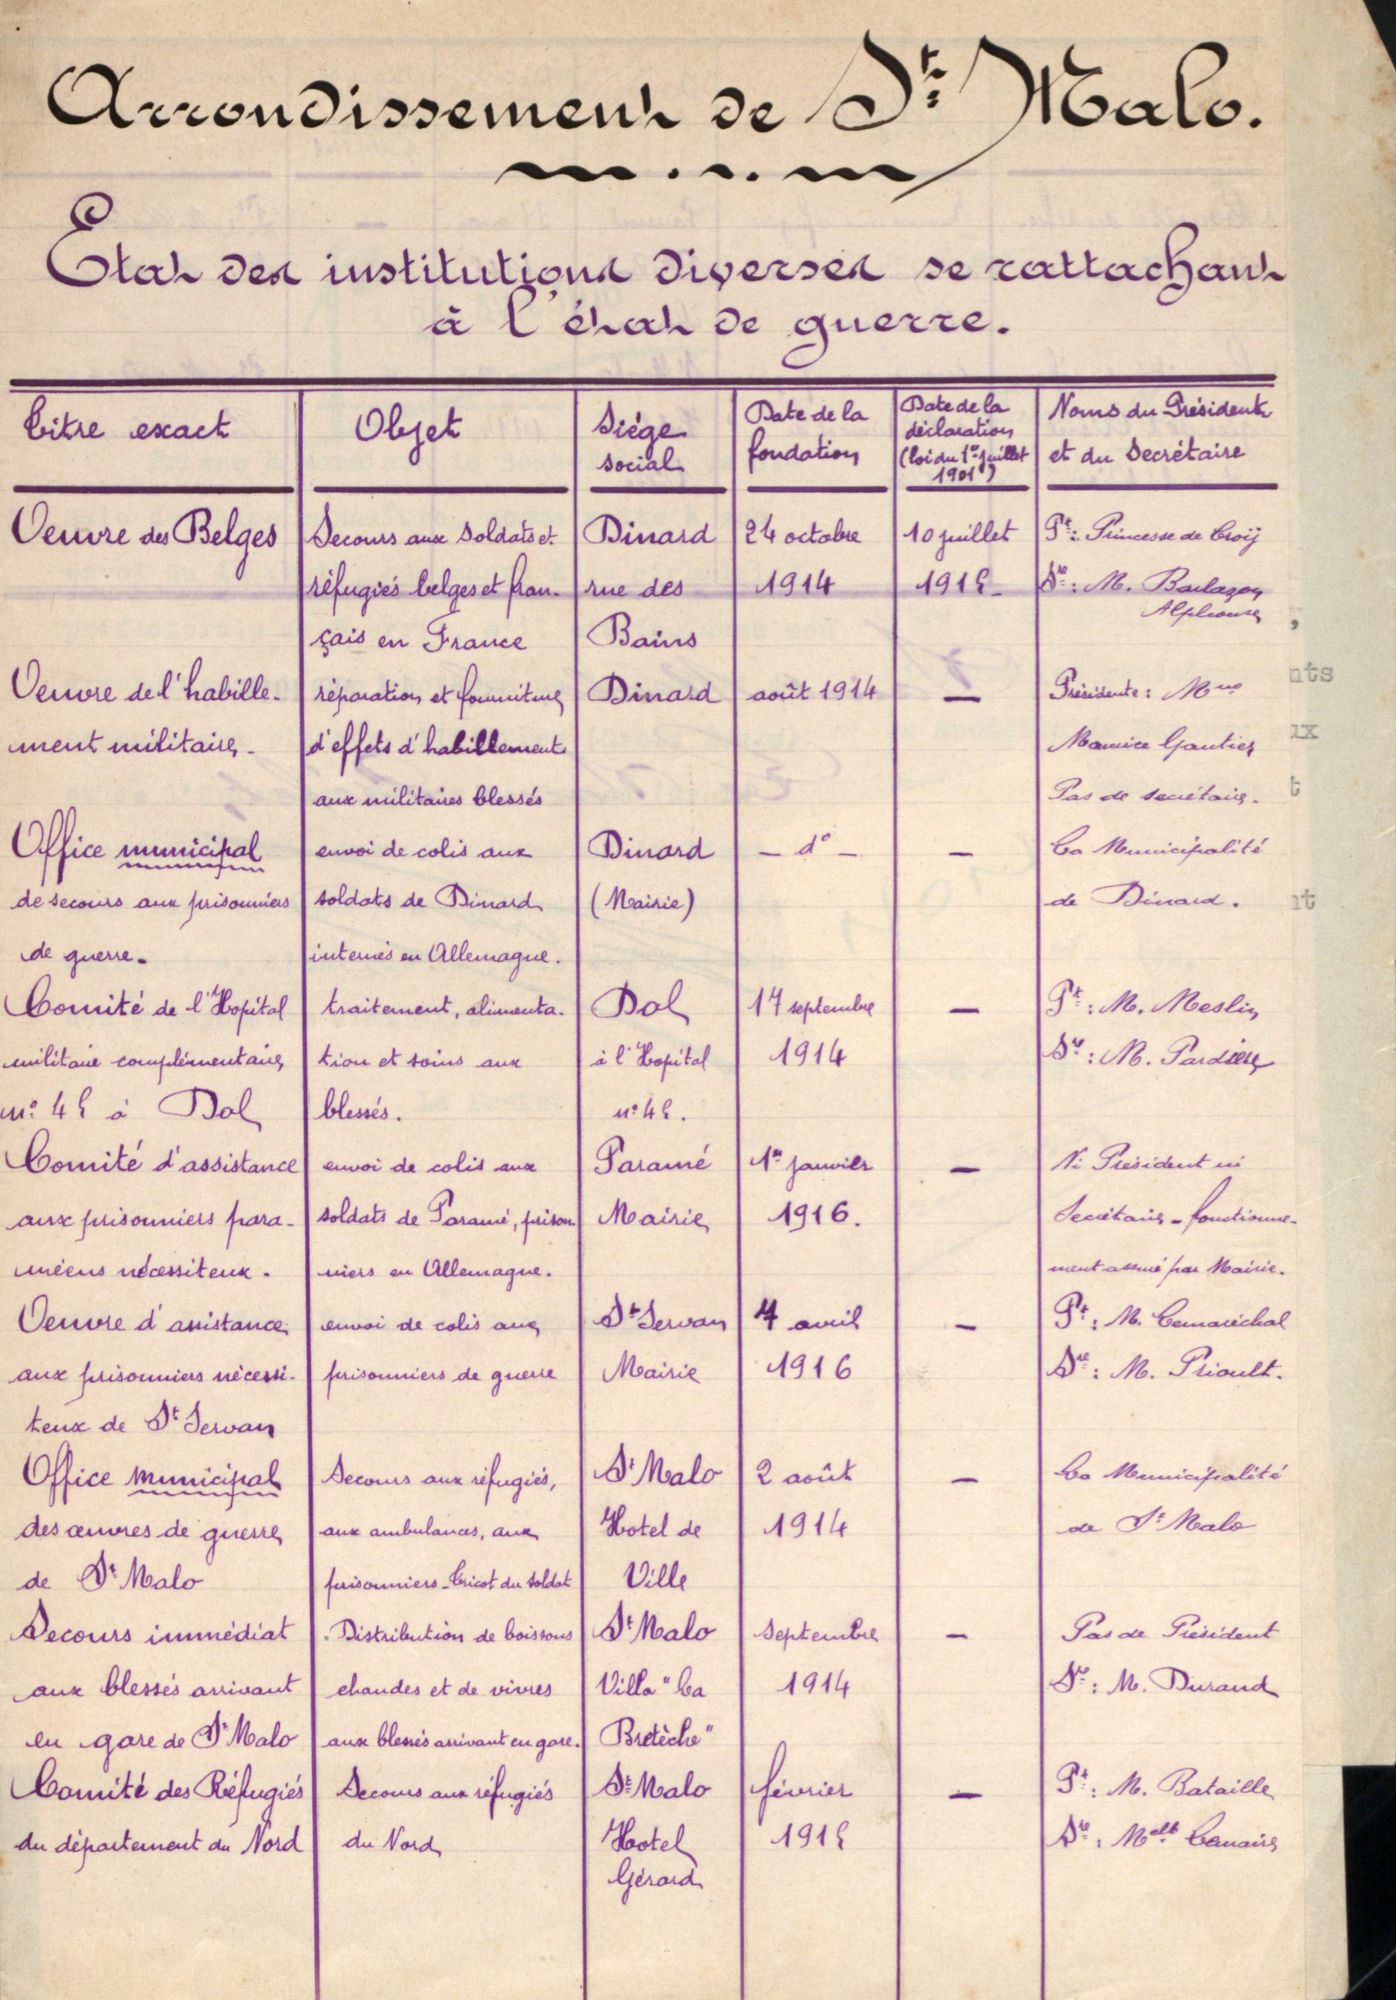 Arrondissement de St Malo.
Etat des institutions diverses se rattachant
à l'état de guerre.
Titre exact
Objet
Siége
social
Date de la
fondation
Date de la
déclaration
(loi du 1er juillet
1901)
Noms du Président
et du Secrétaire
Oeuvre des Belges
Secours aux soldats et
réfugiés belges et fran-
çais en France
Dinard
rue des
Bains
24 octobre
1914
10 juillet
1915
Pt: Princesse de Croÿ
Sre: M.
Alphonse
Oeuvre de l'habille-
ment militaire
réparation et fourniture
d'effets d'habillement
aux militaires blessés
Dinard
août 1914
—
Présidente: Mme
Maurice Gautier
Pas de secrétaire.
Office municipal
de secours aux prisonniers
de guerre.
envoi de colis aux
soldats de Dinard
internés en Allemagne.
Dinard
(Mairie)
— do —
—
La Municipalité
de Dinard.
Comité de l'Hopital
militaire complémentaire
no 45 à Dol
traitement, alimenta-
tion et soins aux
blessés.
Dol
à l'Hopital
no 45.
17 septembre
1914
—
Pt: M. Meslin
Sre: M. Pardière
Comité d'assistance
aux prisonniers para-
méens nécessiteux.
envoi de colis aux
soldats de Paramé, prison-
niers en Allemagne.
Paramé
Mairie
1er janvier
1916.
—
Ni Président ni
Secrétaire - fonctionne-
ment assuré par Mairie.
Oeuvre d'assistance
aux prisonniers nécessi-
teux de St Servan
envoi de colis aux
prisonniers de guerre
St Servan
Mairie
7 avril
1916
—
Pt: M. Lemaréchal
Sre: M. Prioult.
Office municipal
des œuvres de guerre
de St Malo
Secours aux réfugiés,
aux ambulances, aux
prisonniers - Tricot du soldat
St Malo
Hotel de
Ville
2 août
1914
—
La Municipalité
de St Malo
Secours immédiat
aux blessés arrivant
en gare de St Malo
Distribution de boissons
chaudes et de vivres
aux blessés arrivant en gare.
St Malo
Villa "La
Bretèche"
septembre
1914
—
Pas de Président
Sre: M. Durand
Comité des Réfugiés
du département du Nord
Secours aux réfugiés
du Nord
St Malo
Hotel
Gérard
février
1915
—
Pt: M. Bataille
Sre: Melle Lemaire
nts
ux
t
nt